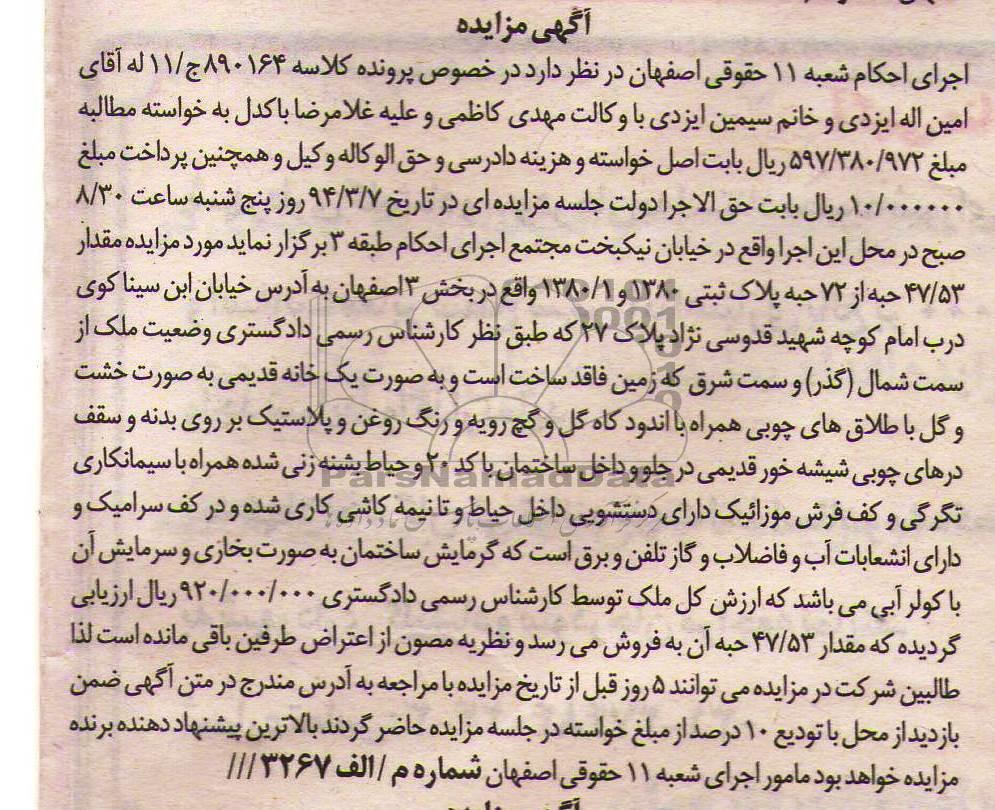 آگهی مزایده
اجرای احکام شعبه ۱۱ حقوقی اصفهان در نظر دارد در خصوص پرونده کلاسه ۸۹۰۱۶۴ج/۱۱ له آقای
امین اله ایزدی و خانم سیمین ایزدی با وکالت مهدی کاظمی و علیه غلامرضا باکدل به خواسته مطالبه
مبلغ ۵۹۷/۳۸۰/۹۷۲ ریال بابت اصل خواسته و هزینه دادرسی و حق الوکاله وکیل و همچنین پرداخت مبلغ
۱۰/۰۰۰۰۰۰ ریال بابت حق الاجرا دولت جلسه مزایده ای در تاریخ ۹۴/۳/۷ روز پنج شنبه ساعت ۸/۳۰
صبح در محل این اجرا واقع در خیابان نیکبخت مجتمع اجرای احکام طبقه ۳ برگزار نماید مورد مزایده مقدار
۴۷/۵۳ حبه از ۷۲ حبه پلاک ثبتی ۱۳۸۰ و ۱۳۸۰/۱ واقع در بخش ۳ اصفهان به آدرس خیابان ابن سینا کوی
درب امام کوچه شهید قدوسی نژاد پلاک ۲۷ که طبق نظر کارشناس رسمی دادگستری وضعیت ملک از
سمت شمال (گذر) و سمت شرق که زمین فاقد ساخت است و به صورت یک خانه قدیمی به صورت خشت
و گل با طلاق های چوبی همراه با اندود کاه گل و گچ رویه و رنگ روغن و پلاستیک بر روی بدنه و سقف
درهای چوبی شیشه خور قدیمی در جلو و داخل ساختمان با کد ۲۰ و حیاط بشنه زنی شده همراه با سیمانکاری
تگرگی و کف فرش موزائیک دارای دستشویی داخل حیاط و تا نیمه کاشی کاری شده و در کف سرامیک و
دارای انشعابات آب و فاضلاب و گاز تلفن و برق است که گرمایش ساختمان به صورت بخاری و سرمایش آن
با کولر آبی می باشد که ارزش کل ملک توسط کارشناس رسمی دادگستری ۹۲۰/۰۰۰/۰۰۰ ریال ارزیابی
گردیده که مقدار ۴۷/۵۳ حبه آن به فروش می رسد و نظریه مصون از اعتراض طرفین باقی مانده است لذا
طالبین شرکت در مزایده می توانند ۵ روز قبل از تاریخ مزایده با مراجعه به آدرس مندرج در متن آگهی ضمن
بازدید از محل با تودیع ۱۰ درصد از مبلغ خواسته در جلسه مزایده حاضر گردند بالاترین پیشنهاد دهنده برنده
مزایده خواهد بود مامور اجرای شعبه ۱۱ حقوقی اصفهان شماره م / الف ۳۲۶۷ ///
ParsNamadData